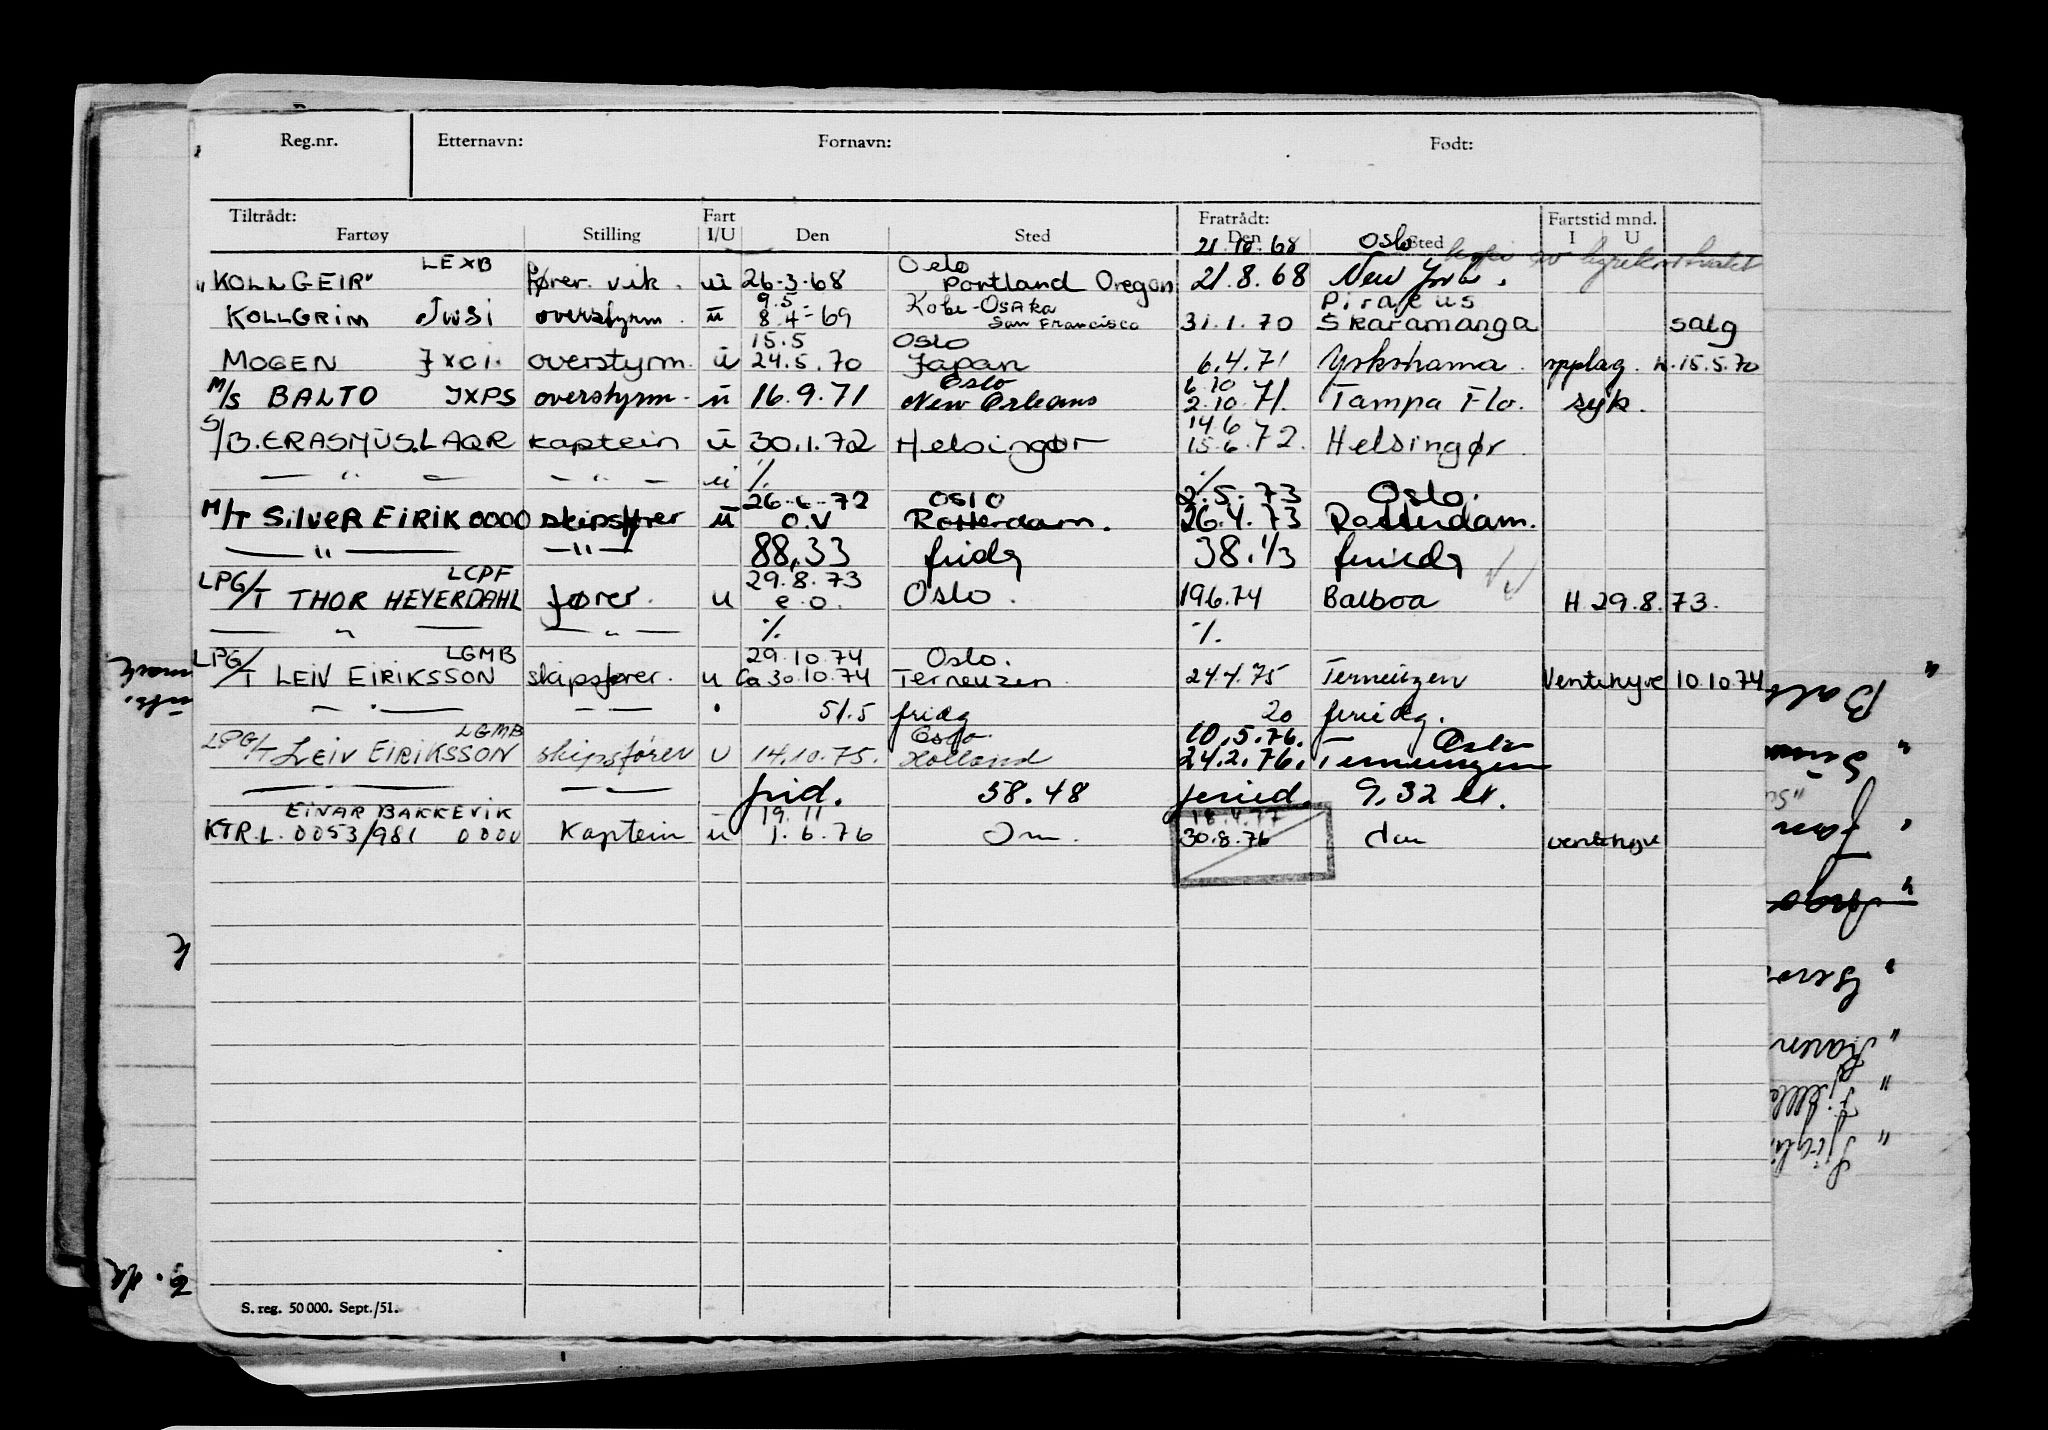 Reg.nr. Etternavn: Fornavn: Født:
Tiltrådt: Fart Fratrådt: Fartstid mnd.
Fartøy Stilling I/U Den Sted Den Sted I U
LEXB Oslo 21.10.68 Oslo
"KOLLGEIR" fører. vik. ü 26-3-68 Portland Oregon 21.8.68 New York.
9.5 Kobe-Osaka Piraeus
KOLLGRIM JWSI overstyrm. ü 8.4-69 San Francisco 31.1.70 Skaramanga salg
15.5 Oslo
MOGEN JXCI. overstyrm. ü 24.5.70 Japan 6.4.71 Yokohama. opplag. H.15.5.70
Oslo 6.10
M/S BALTO JXPS overstyrm. ü 16.9.71 New Orleans 2.10.71. Tampa Flo. syk.
14.6
S/B. ERASMUS. LAQR kaptein ü 30.1.72 Helsingør 15.6.72. Helsingør
— " — — " — ü ./. ./.
26.6.72 Oslo 2.5.73 Oslo.
M/T SILVER EIRIK 0000 skipsfører ü o.v Rotterdam. 26.4.73 Rotterdam.
— " — — " — 88,33 fridg 38.1/3 feriedg
LCPF 29.8.73
LPG/T THOR HEYERDAHL fører. u e.o. Oslo. 19.6.74 Balboa H.29.8.73.
— " — — " — ./. ./.
LGMB 29.10.74 Oslo.
LPG/T LEIV EIRIKSSON skipsfører. u Ca 30.10.74 Terneuzen 24.4.75 Terneuzen Ventehyre 10.10.74
— " — — " — 51.5 fridg 20 feriedg.
LGMB Oslo. 10.5.76. Oslo
LPG/T LEIV EIRIKSSON skipsfører u 14.10.75. Holland 24.2.76. Terneuzen
— — frid. 58.48 feried. 9,32
EINAR BAKKEVIK 19.11 18.4.77
KTR.L. 0053/981 0000 Kaptein ü 1.6.76 30.8.76 ventehyre
S. reg. 50 000. Sept./51.